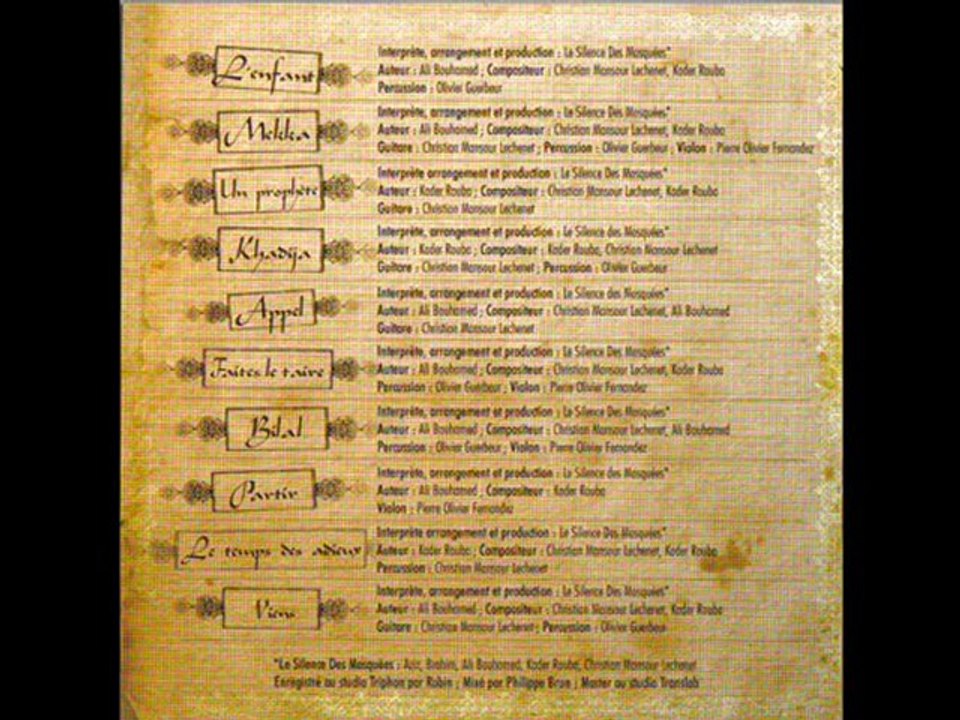 L'enfant
Interprète, arrangement et production : Le Silence Des Mosquées*
Auteur : Ali Bouhamed ; Compositeur : Christian Mansour Lechenet, Kader Rouba
Percussion : Olivier Guerbeur
Mekka
Interprète, arrangement et production : Le Silence Des Mosquées*
Auteur : Ali Bouhamed ; Compositeur : Christian Mansour Lechenet, Kader Rouba
Guitare : Christian Mansour Lechenet ; Percussion : Olivier Guerbeur ; Violon : Pierre Olivier Fernandez
Un prophète
Interprète, arrangement et production : Le Silence Des Mosquées*
Auteur : Kader Rouba ; Compositeur : Christian Mansour Lechenet, Kader Rouba
Guitare : Christian Mansour Lechenet
Khadija
Interprète, arrangement et production : Le Silence Des Mosquées*
Auteur : Kader Rouba ; Compositeur : Kader Rouba, Christian Mansour Lechenet
Guitare : Christian Mansour Lechenet ; Percussion : Olivier Guerbeur
Appel
Interprète, arrangement et production : Le Silence des Mosquées*
Auteur : Ali Bouhamed ; Compositeur : Christian Mansour Lechenet, Ali Bouhamed
Guitare : Christian Mansour Lechenet
Faites le taire
Interprète, arrangement et production : Le Silence Des Mosquées*
Auteur : Ali Bouhamed ; Compositeur : Christian Mansour Lechenet, Kader Rouba
Percussion : Olivier Guerbeur ; Violon : Pierre Olivier Fernandez
Bilal
Interprète, arrangement et production : Le Silence Des Mosquées*
Auteur : Ali Bouhamed ; Compositeur : Christian Mansour Lechenet, Ali Bouhamed
Percussion : Olivier Guerbeur ; Violon : Pierre Olivier Fernandez
Partir
Interprète, arrangement et production : Le Silence des Mosquées*
Auteur : Ali Bouhamed ; Compositeur : Kader Rouba
Violon : Pierre Olivier Fernandez
Le temps des adieux
Interprète arrangement et production : Le Silence Des Mosquées*
Auteur : Kader Rouba ; Compositeur : Christian Mansour Lechenet, Kader Rouba
Percussion : Christian Mansour Lechenet
Viens
Interprète, arrangement et production : Le Silence Des Mosquées*
Auteur : Ali Bouhamed ; Compositeur : Christian Mansour Lechenet, Kader Rouba
Guitare : Christian Mansour Lechenet ; Percussion : Olivier Guerbeur
*Le Silence Des Mosquées : Aziz, Ibrahim, Ali Bouhamed, Kader Rouba, Christian Mansour Lechenet
Enregistré au studio Triphon par Robin ; Mixé par Philippe Brun ; Master au studio Translab